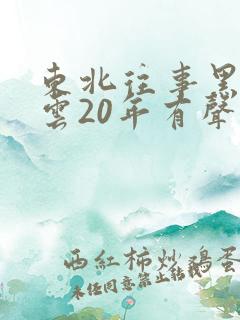 東北往事黑
雲20年有聲
西紅柿炒鷄蛋
未經同意禁止轉載